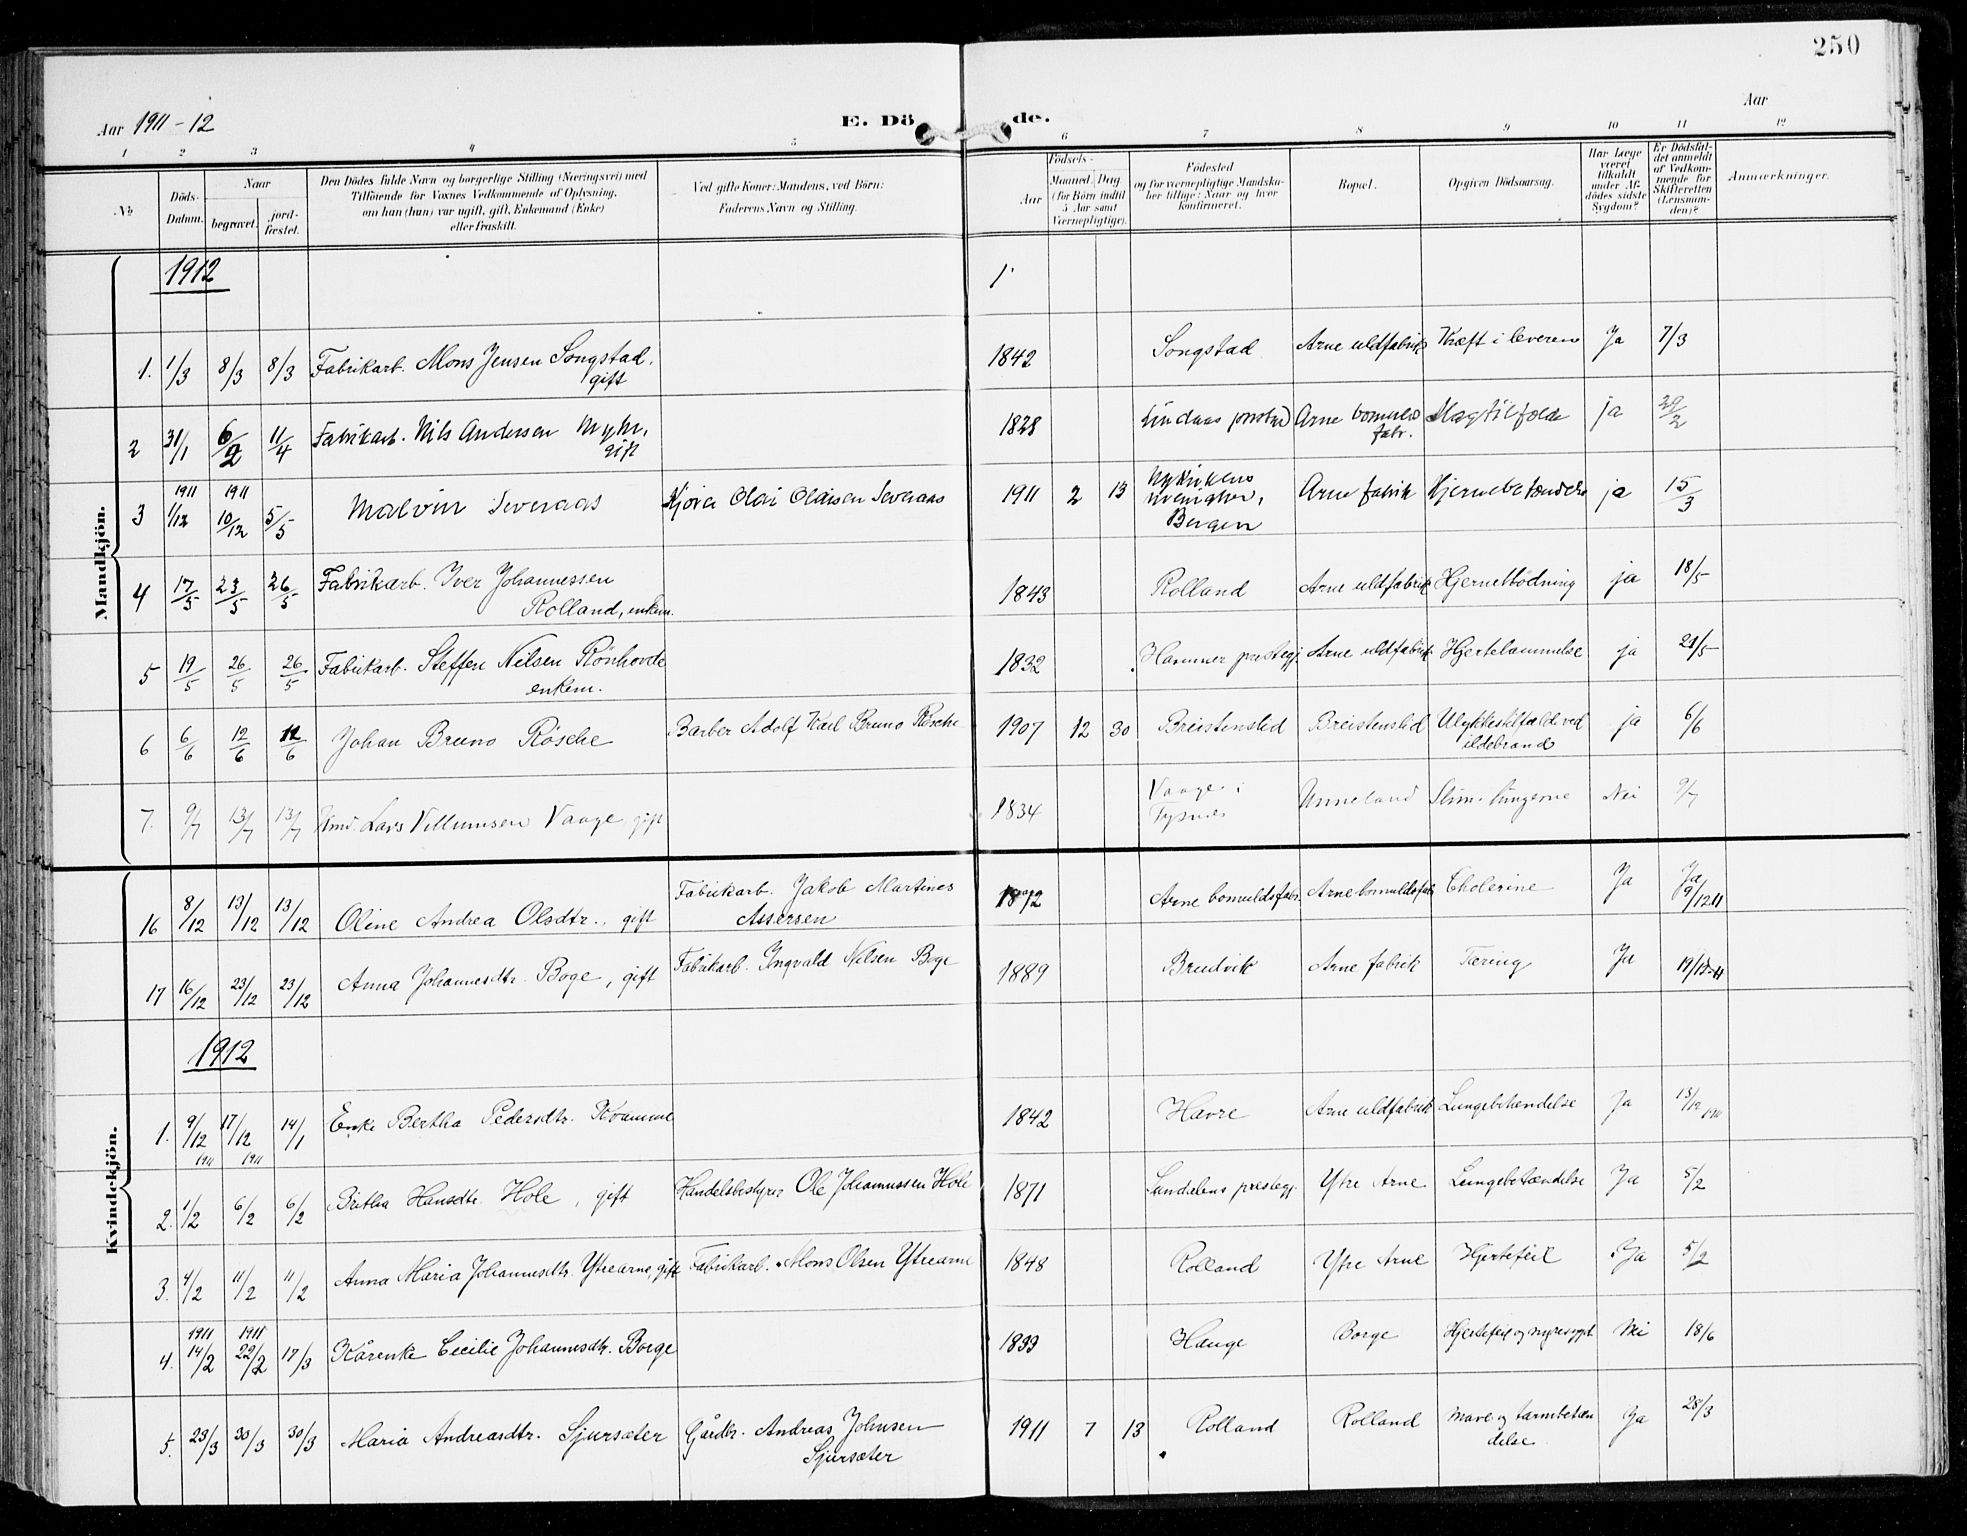 250
Aar 1911-12
E. Dö
de.
Aar
1 2 3 4 5 6 7 8 9 10 11 12
№
Döds-Datum.
Naar
begravet.
jord-fæstet.
Den Dödes fulde Navn og borgerlige Stilling (Næringsvei) med
Tilföiende for Voxnes Vedkommende af Oplysning,
om han (hun) var ugift, gift, Enkemand (Enke)
eller fraskilt.
Ved gifte Koner: Mandens, ved Börn:
Faderens Navn og Stilling.
Födsels-
Aar
Maaned. Dag
(for Börn indtil
5 Aar samt
Værnepligtige).
Födested
og for værnepligtige Mandska-
ber tillige: Naar og hvor
konfirmeret.
Bopæl.
Opgiven Dödsaarsag.
Har Læge
været
tilkaldt
under Af-
dödes sidste
Sygdom?
Er Dödsfal-
det anmeldt
af Vedkom-
mende for
Skifteretten
(Lensman-
den)?
Anmærkninger.
Mandkjön.
1912
1. 1/3 8/3 8/3 Fabrikarb. Mons Jensen Songstad, gift 1842 Songstad Arne uldfabrik Kræft i leveren Ja 7/3
2 31/1 6/2 11/4 Fabrikarb. Nils Andersen Myhr, gift 1828 Arne bomulds fabr. Slagtilfælde ja 29/2
3 1911 1/12 1911 10/12 5/5 Malvin Severaas Olai Olaisen Severaas 1911 2 13 Bergen Arne fabrik Hjernebetændelse ja 15/3
4 17/5 23/5 26/5 Fabrikarb. Iver Johannessen Rolland, enkem. 1843 Rolland Arne uldfabrik Hjerneblødning ja 18/5
5 19/5 26/5 26/5 Fabrikarb. Steffen Nilsen Rönhovde enkem. 1832 Hammer prestegj. Arne uldfabrik Hjertelammelse ja 21/5
6 6/6 12/6 12/6 Johan Bruno Rösche Barber Adolf Karl Bruno Rösche 1907 12 30 Breistensled Breistensled Ulykkestilfælde ved ildebrand ja 6/6
7. 9/7 13/7 13/7 Lars Villumsen Vaage, gift 1834 Vaage i Tysnes Unneland Slim. lungerne Nei 9/7
Kvindekjön.
16 8/12 13/12 13/12 Oline Andrea Olsdtr., gift Fabrikarb. Jakob Martines Assersen 1872 Arne bomuldsfabr. Arne bomuldsfab Cholerine Ja Ja 9/12 11
17 16/12 23/12 23/12 Anna Johannesdtr. Boge, gift Fabrikarb. Ingvald Nilsen Boge 1889 Brudvik Arne fabrik Tæring Ja 19/12-11
1912
1. 9/12 1911 17/12 1911 14/1 Enke Bertha Pedersdtr. Kvamme 1842 Havre Arne uldfabrik Lungebetændelse Ja 13/12 1911
2. 1/2 6/2 6/2 Britha Hansdtr. Hole, gift Handelsbestyrer Ole Johannessen Hole 1871 prestegj. Ytre Arne Lungebetændelse Ja 5/2
3. 4/2 11/2 11/2 Anna Maria Johannesdtr. Ytrearne, gift Fabrikarb. Mons Olsen Ytrearne 1848 Rolland Ytre Arne Hjertefeil Ja 5/2
4. 1911 14/2 1911 22/2 17/3 Kårenke Cecilie Johannesdtr. Borge 1833 Hauge Borge Hjertefeil og nyresygd. Nei 18/6
5. 23/3 30/3 30/3 Maria Andreasdtr. Sjursæter Gårdbr. Andreas Johnsen Sjursæter 1911 7 13 Rolland Rolland Mave og tarmbetændelse Ja 28/3